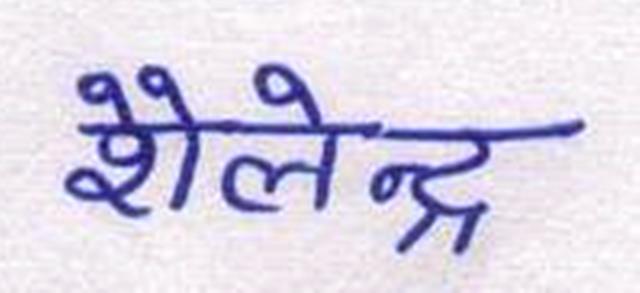 शैलेन्द्र